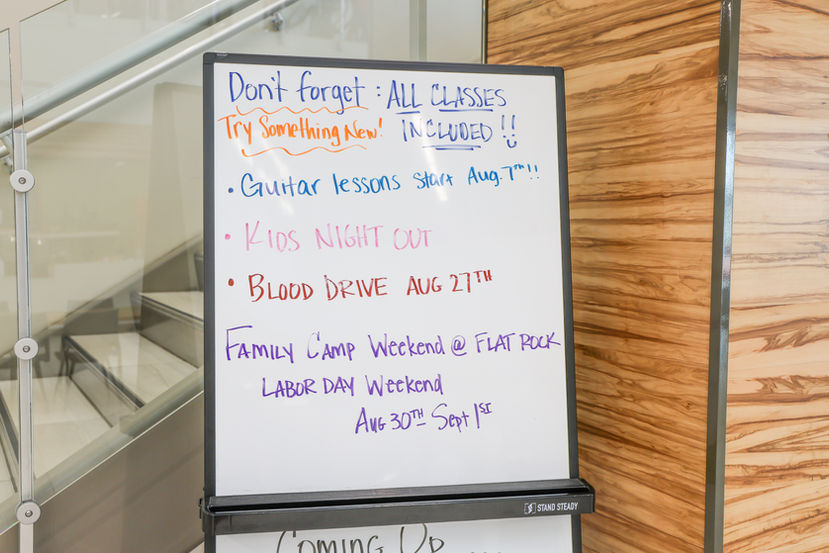 Don't forget : ALL CLASSES
Try Something New! INCLUDED !!
• Guitar lessons start Aug. 7th!!
• KIDS NIGHT OUT
• BLOOD DRIVE AUG 27TH
FAMILY CAMP Weekend @ FLAT ROCK
LABOR DAY Weekend
AUG 30TH Sept 1ST
STAND STEADY
COMING UP